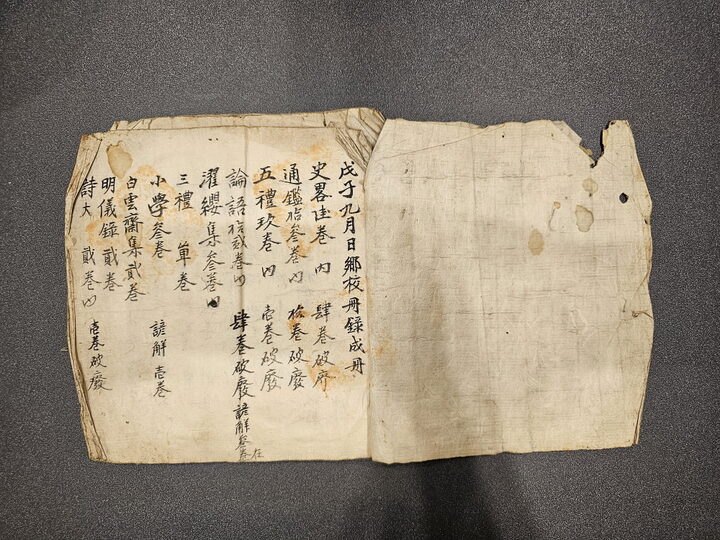 戊子九月日鄕校冊錄成冊
史畧 卷 內 肆卷破
通鑑拾叄卷內 拾卷破廢
五禮玖卷內 壹卷破廢
論語拾貳卷內 肆卷破廢 諺解叄卷 在
濯纓集叄卷
三禮 單卷
小學叄卷 諺解壹卷
白雲齋集貳卷
明儀錄貳卷
詩大 貳卷內 壹卷破廢